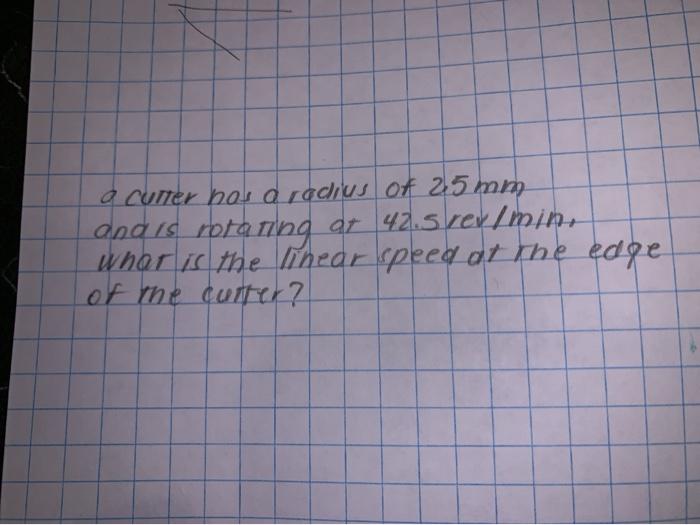 a cutter has a radius of 2.5 mm
and is rotating at 42.5 rev/min.
what is the linear speed at the edge
of the cutter?